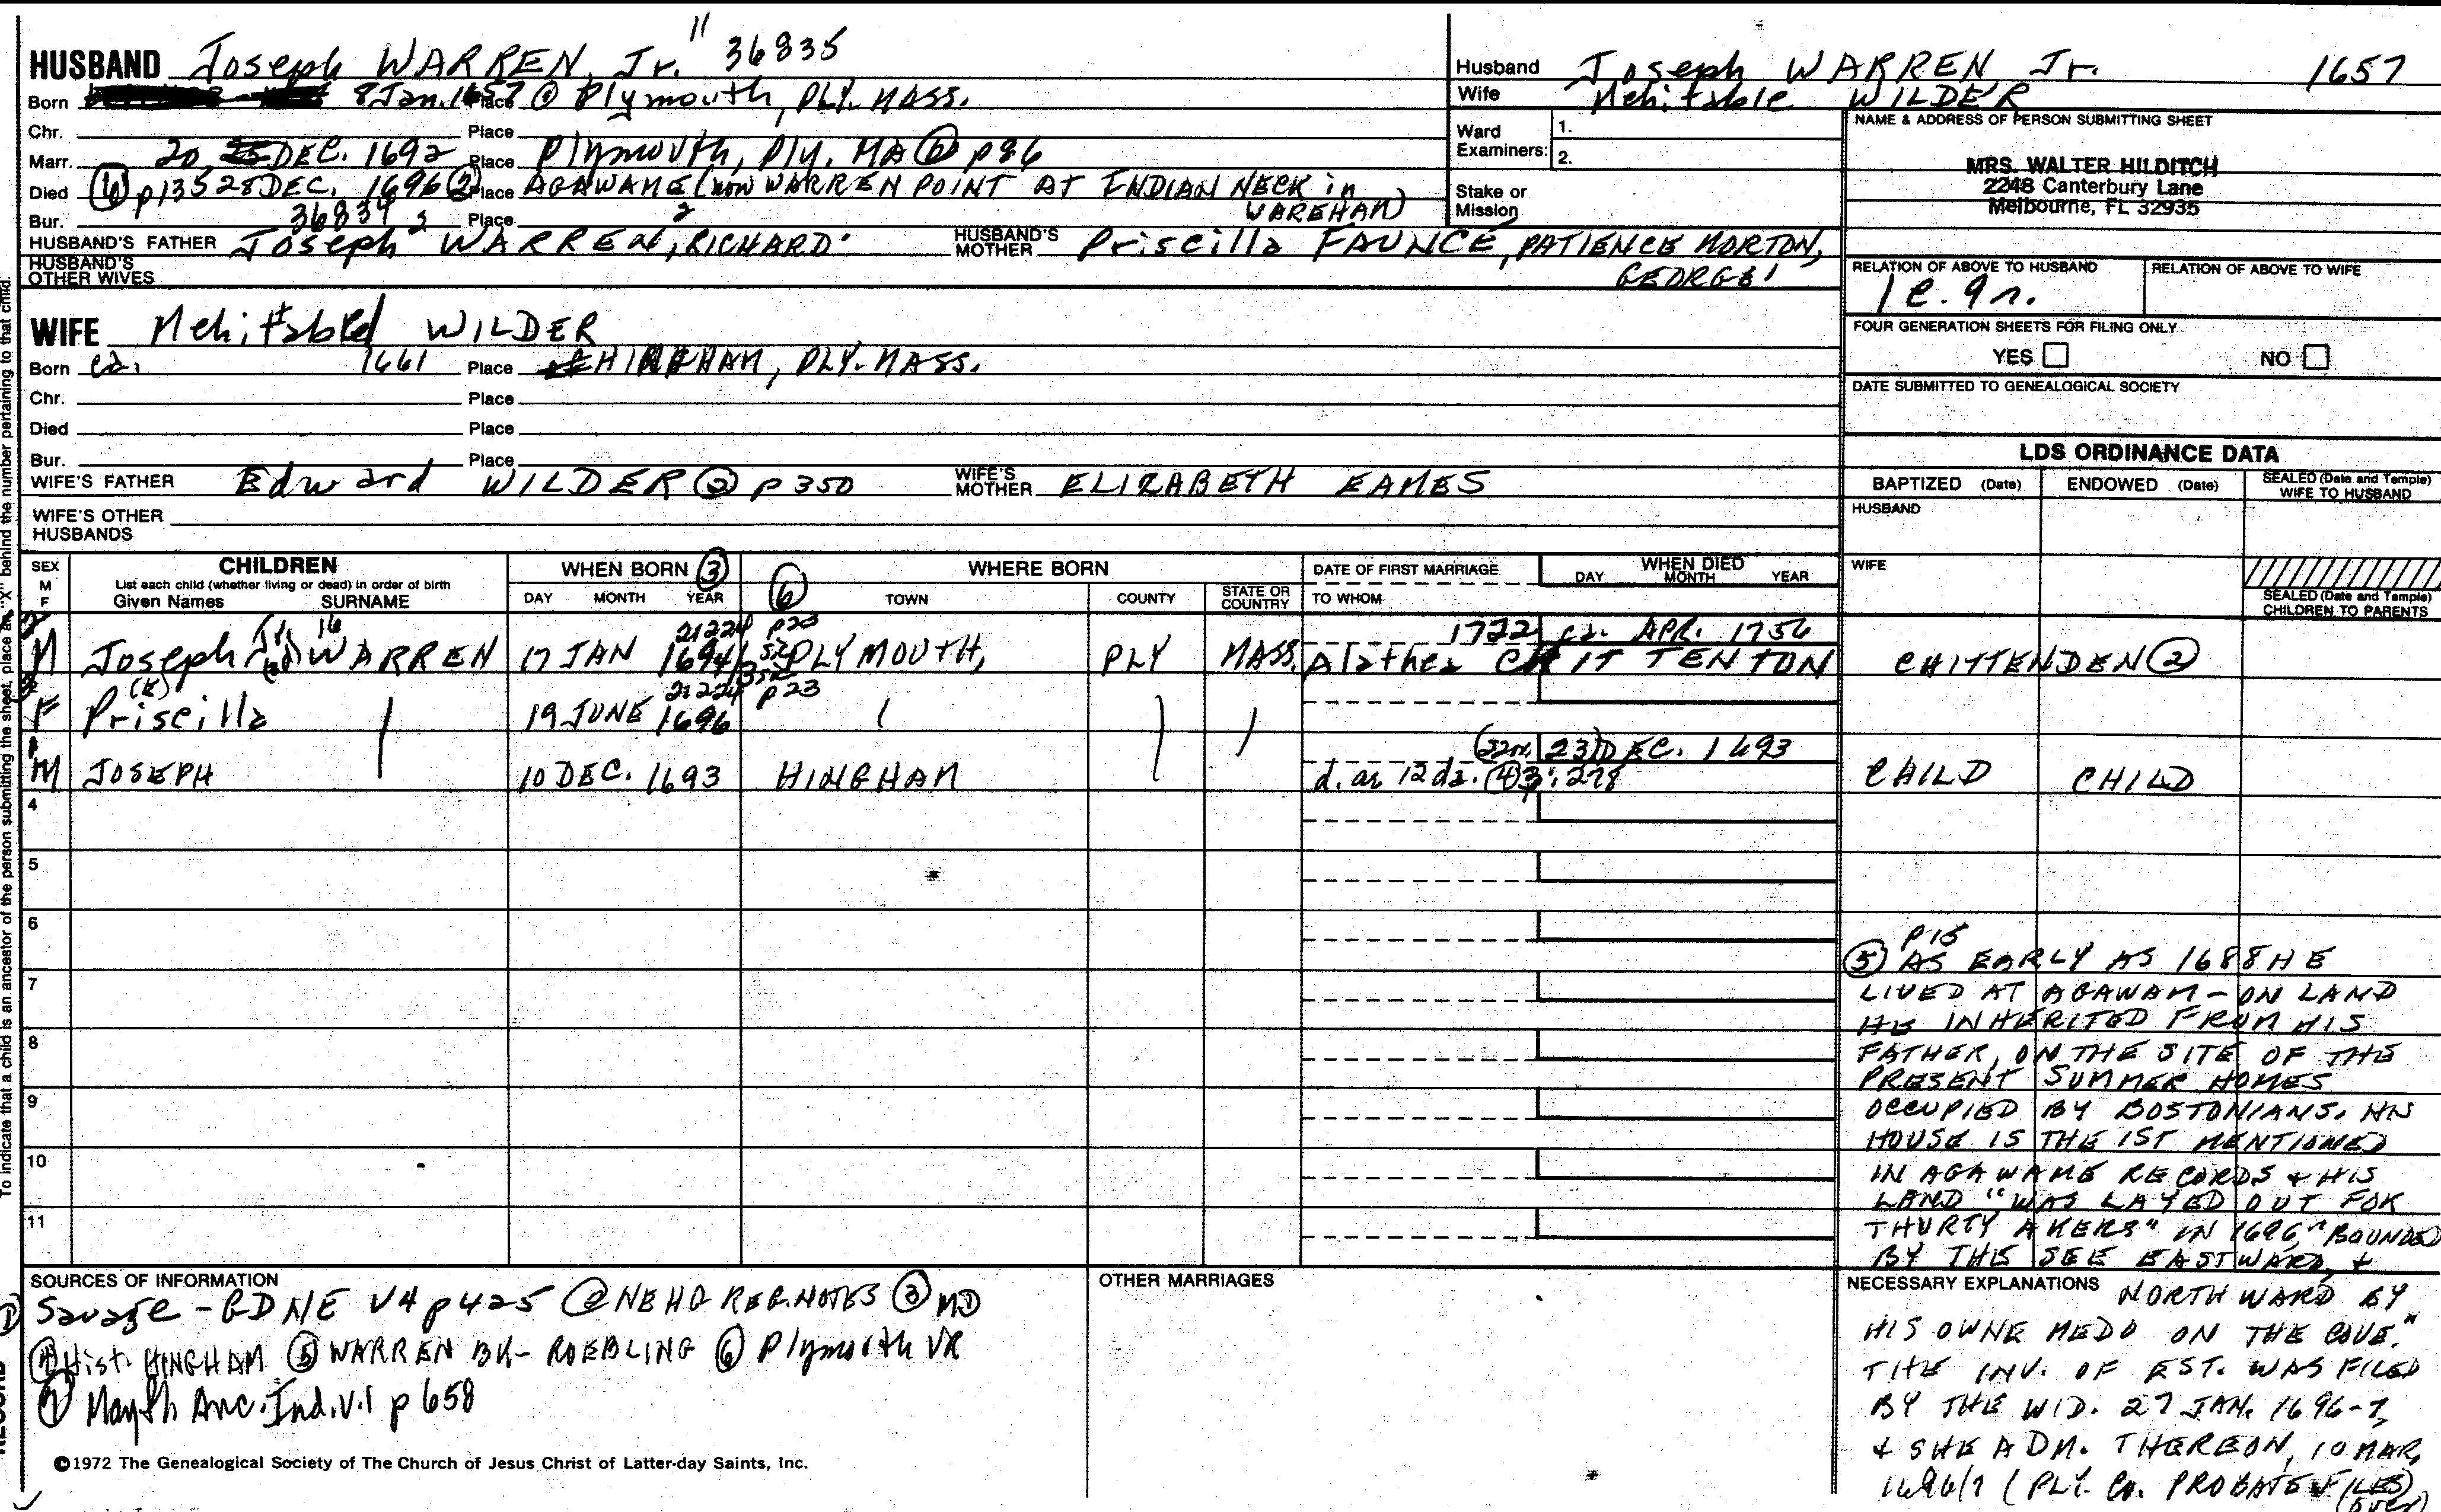 HUSBAND Joseph WARREN, Jr. " 36835
Born 8 Jan. 1657 Place @ Plymouth, PLY. MASS.
Chr. Place
Marr. 20 25 DEC. 1692 Place Plymouth, Ply. MA ⑥ p 86
Died ⑥ p135 28 DEC. 1696 ② Place AGAWAME (now WARREN POINT AT INDIAN NECK in
WAREHAM)
Bur. 36834 Place
HUSBAND'S FATHER Joseph WARREN, RICHARD
HUSBAND'S MOTHER Priscilla FAUNCE, PATIENCE MORTON,
GEORGE 1
HUSBAND'S OTHER WIVES
WIFE Mehitabel WILDER
Born ca. 1661 Place HINGHAM, PLY. MASS.
Chr. Place
Died Place
Bur. Place
WIFE'S FATHER Edward WILDER ② p 350
WIFE'S MOTHER ELIZABETH EAMES
WIFE'S OTHER HUSBANDS
Husband Joseph WARREN Jr. 1657
Wife Mehitable WILDER
Ward Examiners: 1.
2.
Stake or Mission
NAME & ADDRESS OF PERSON SUBMITTING SHEET
MRS. WALTER HILDITCH
2248 Canterbury Lane
Melbourne, FL 32935
RELATION OF ABOVE TO HUSBAND RELATION OF ABOVE TO WIFE
FOUR GENERATION SHEETS FOR FILING ONLY
YES NO
DATE SUBMITTED TO GENEALOGICAL SOCIETY
LDS ORDINANCE DATA
BAPTIZED (Date) ENDOWED (Date) SEALED (Date and Temple) WIFE TO HUSBAND
HUSBAND
WIFE
SEALED (Date and Temple) CHILDREN TO PARENTS
SEX M F
CHILDREN
List each child (whether living or dead) in order of birth
Given Names SURNAME
WHEN BORN ③
DAY MONTH YEAR
⑥ WHERE BORN
TOWN COUNTY STATE OR COUNTRY
DATE OF FIRST MARRIAGE
TO WHOM
WHEN DIED
DAY MONTH YEAR
21224 p23 1722 ca. APR. 1756
M Joseph WARREN 17 JAN 1694 PLYMOUTH, PLY MASS. Alathea CHITTENTON CHITTENDEN ②
21224 p23
F Priscilla 19 JUNE 1696
23 DEC. 1693
M JOSEPH 10 DEC. 1693 HINGHAM d. ae 12 da. ④ 3:278 CHILD CHILD
4
5
6
7
8
9
10
11
p 15
⑤ AS EARLY AS 1688 HE
LIVED AT AGAWAM - ON LAND
HE INHERITED FROM HIS
FATHER, ON THE SITE OF THE
PRESENT SUMMER HOMES
OCCUPIED BY BOSTONIANS. HIS
HOUSE IS THE 1ST MENTIONED
IN AGAWAME RECORDS & HIS
LAND "WAS LAYED OUT FOR
THURTY AKERS" IN 1696, "BOUNDED
BY THE SEE EASTWARD, &
NECESSARY EXPLANATIONS NORTHWARD BY
HIS OWNE MEDO ON THE COVE."
THE INV. OF EST. WAS FILED
BY THE WID. 27 JAN. 1696-7,
& SHE ADM. THEREON, 10 MAR,
1696/7 (PLY. Co. PROBATE FILES)
(over)
SOURCES OF INFORMATION
① Savage - GDNE V4 p425 ② NEHG REG. NOTES ③ MD
④ Hist. HINGHAM ⑤ WARREN BK - ROEBLING ⑥ Plymouth VR
⑦ Mayfl. Anc. Ind. V.1 p 658
OTHER MARRIAGES
©1972 The Genealogical Society of The Church of Jesus Christ of Latter-day Saints, Inc.
To indicate that a child is an ancestor of the person submitting the sheet, place an "X" behind the number pertaining to that child.